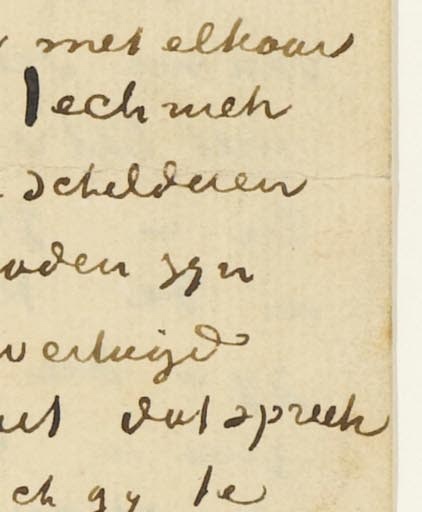 met elkaar
tech men
schelderen
oden zyn
vertuigd
uet dat spreek
ch gy te